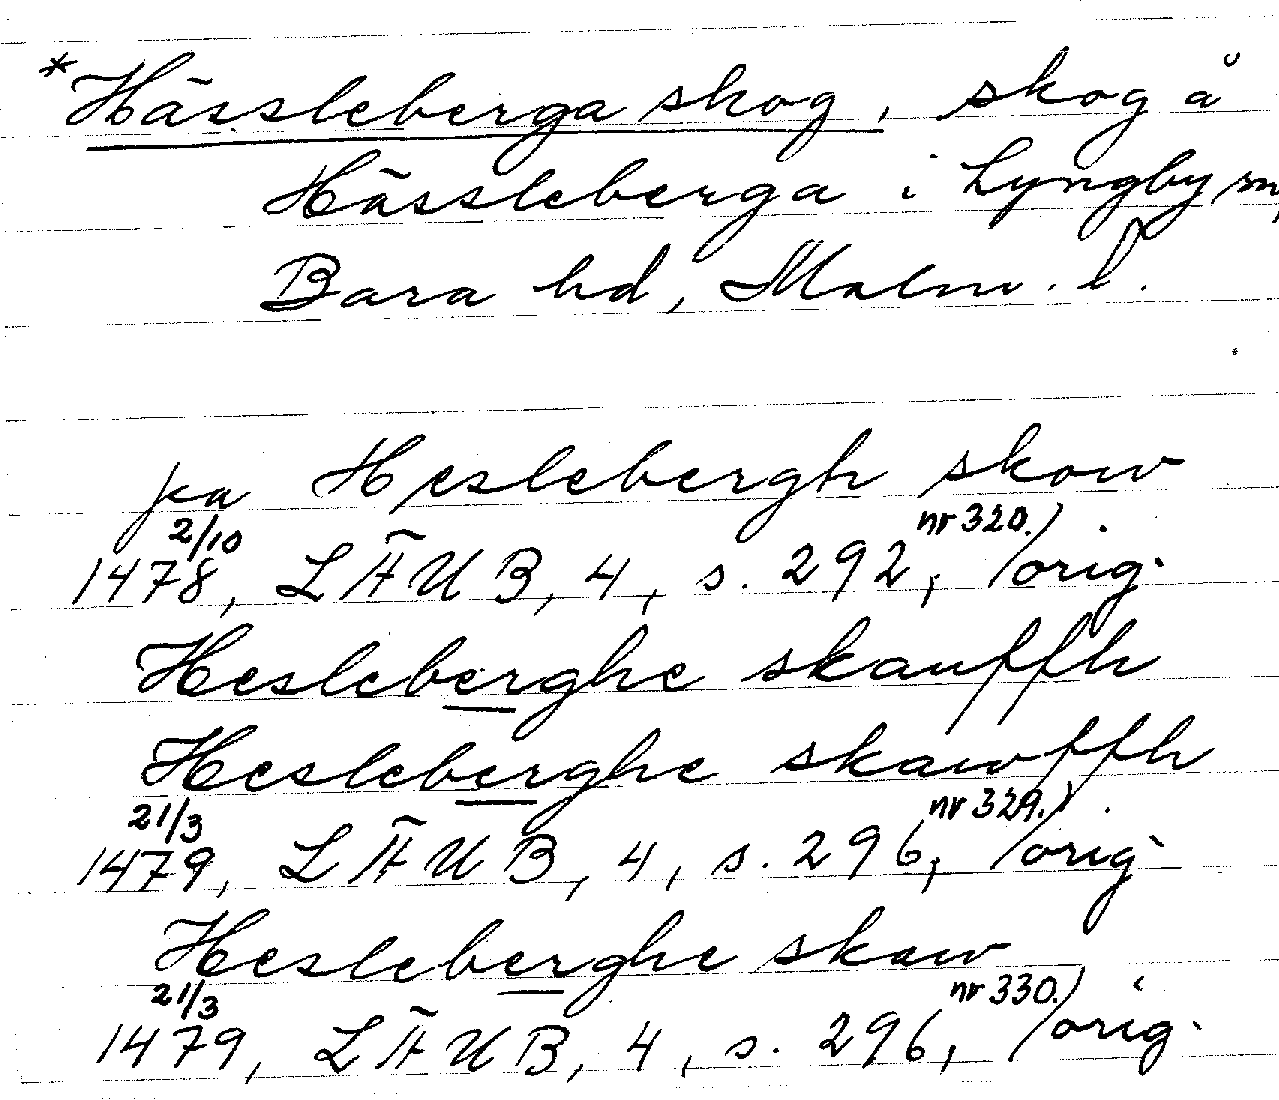 *Hässleberga skog, skog å
Hässleberga i Lyngby sn,
Bara hd, Malm. l.
pa Heslebergh skow
2/10 nr 320.)
1478, LÄUB, 4, s. 292, /orig.
Hesleberghe skauffh
Hesleberghe skawffh
21/3 nr 329.)
1479, LÄUB, 4, s. 296, /orig
Hesleberghe skaw
21/3 nr 330.)
1479, LÄUB, 4, s. 296, /orig.